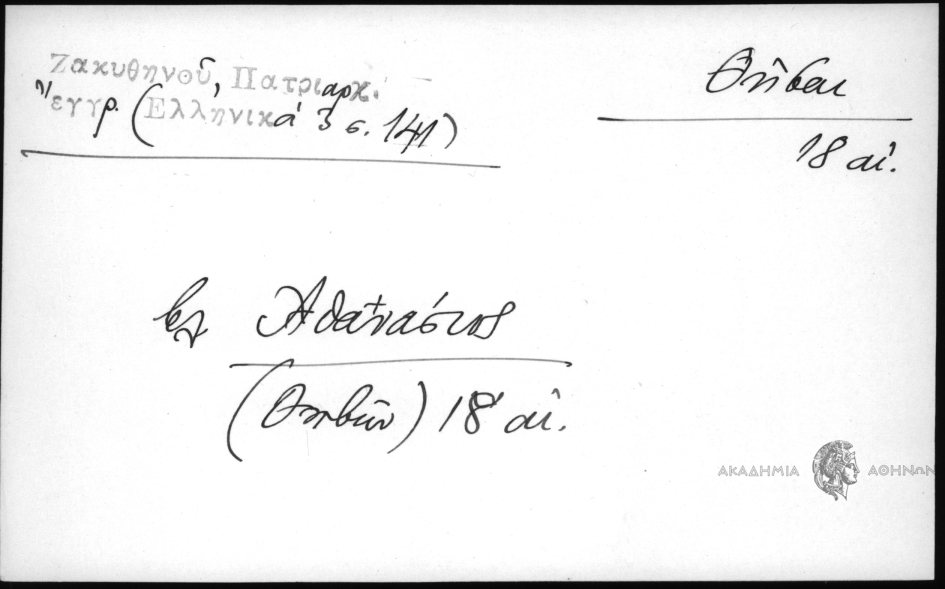 Ζακυθηνοῦ, Πατριαρχ.
ἔγγρ. (Ἑλληνικά 3 σ. 141)
Θῆβαι
18 αἰ.
βλ Ἀθανάσιος
(Θηβῶν) 18 αἰ.
ΑΚΑΔΗΜΙΑ ΑΘΗΝΩΝ